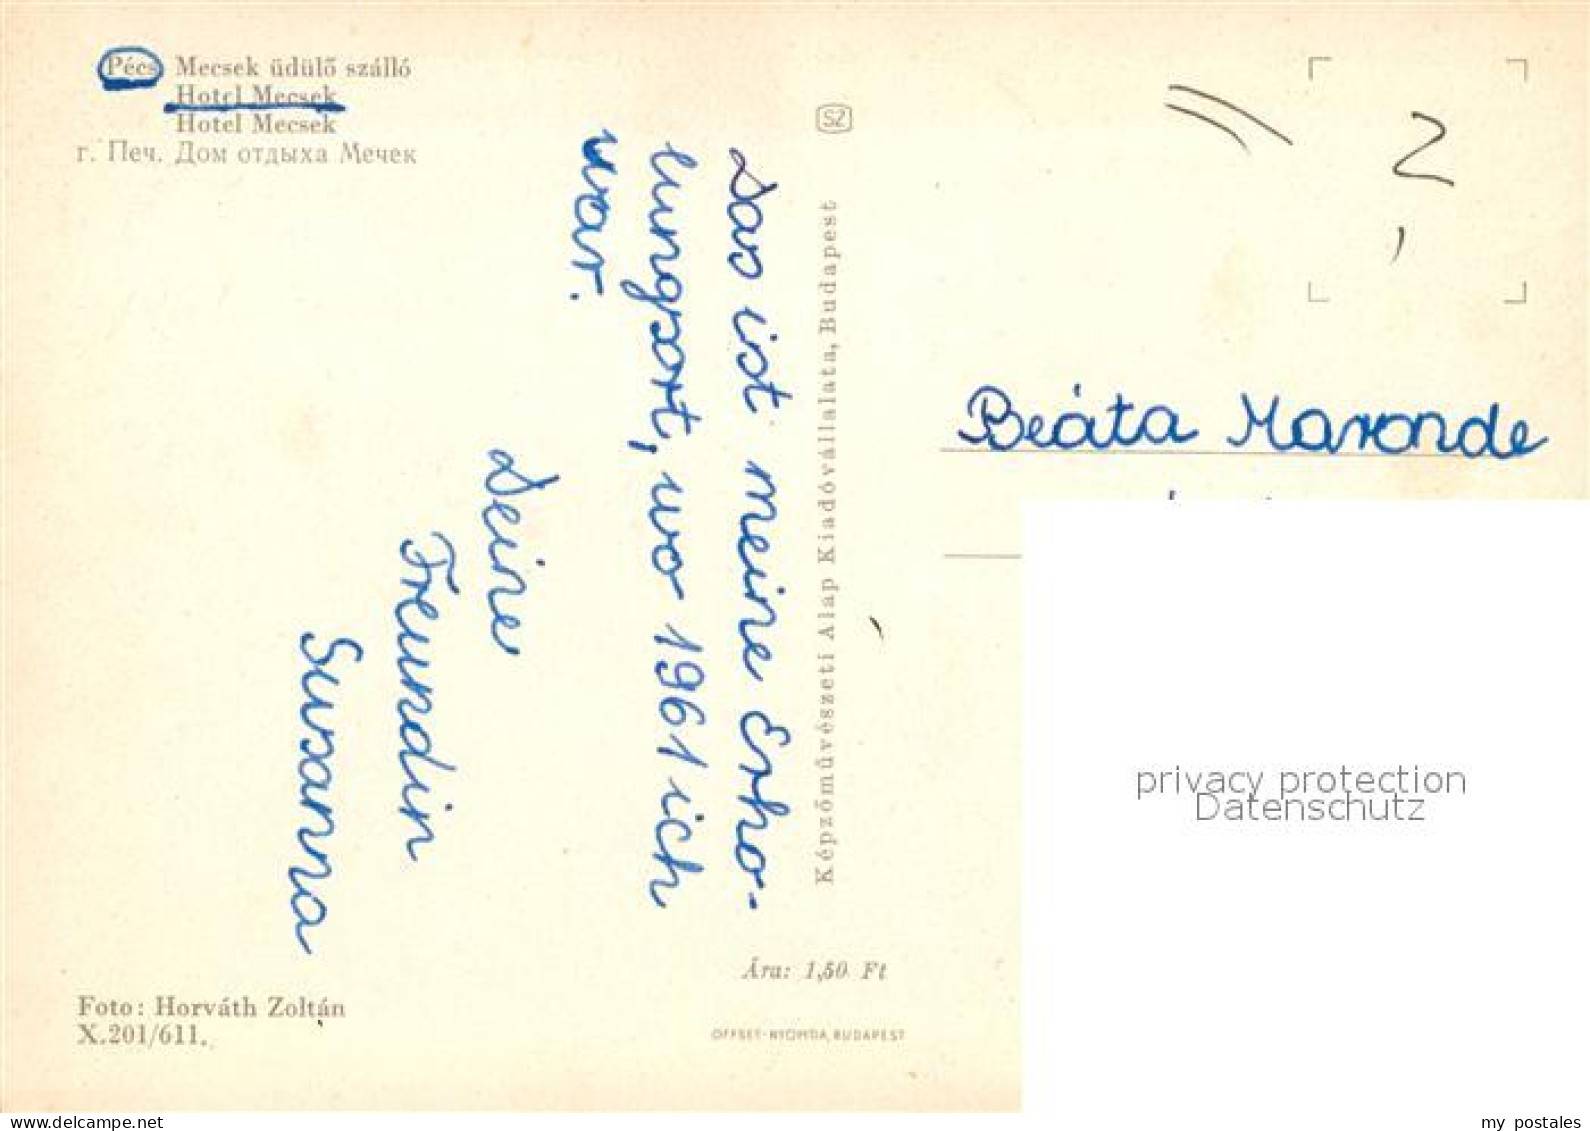 Pécs Mecsek üdülő szálló
Hotel Mecsek
Hotel Mecsek
г. Печ. Дом отдыха Мечек
Das ist meine Erho-
lungsort, wo 1961 ich
war.
Deine
Freundin
Susanna
Foto: Horváth Zoltán
X.201/611.
SZ
Képzőművészeti Alap Kiadóvállalata, Budapest
Ára: 1,50 Ft
OFFSET-NYOMDA, BUDAPEST
Beáta Maronde
privacy protection
Datenschutz
delcampe.net
my_postales